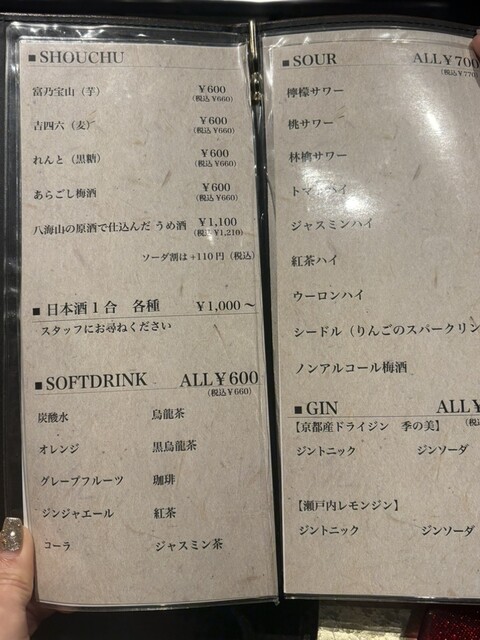 ■ SHOUCHU
富乃宝山（芋） ¥600
(税込 ¥660)
吉四六（麦） ¥600
(税込 ¥660)
れんと（黒糖） ¥600
(税込 ¥660)
あらごし梅酒 ¥600
(税込 ¥660)
八海山の原酒で仕込んだ うめ酒 ¥1,100
(税込 ¥1,210)
ソーダ割は +110 円（税込）
■ 日本酒１合 各種 ¥1,000 ～
スタッフにお尋ねください
■ SOFTDRINK ALL ¥ 600
(税込 ¥660)
炭酸水 烏龍茶
オレンジ 黒烏龍茶
グレープフルーツ 珈琲
ジンジャエール 紅茶
コーラ ジャスミン茶
■ SOUR ALL ¥ 700
(税込 ¥770)
檸檬サワー
桃サワー
林檎サワー
トマトハイ
ジャスミンハイ
紅茶ハイ
ウーロンハイ
シードル（りんごのスパークリン
ノンアルコール梅酒
■ GIN ALL ¥
【京都産ドライジン 季の美】
ジントニック ジンソーダ
【瀬戸内レモンジン】
ジントニック ジンソーダ